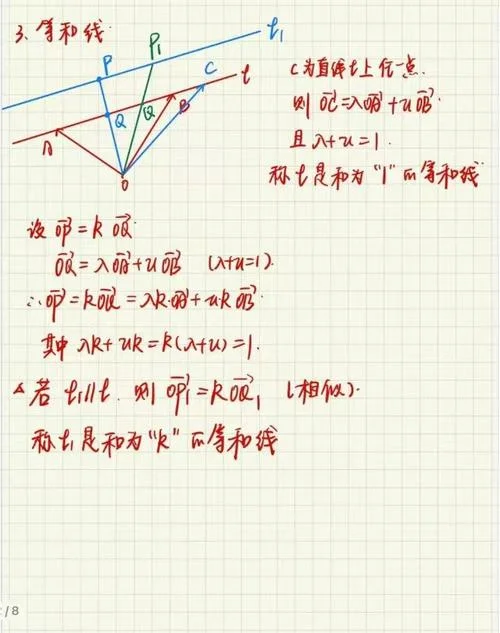 3、等和线
P
P₁
t₁
C
t
Q
Q
B
A
O
C为直线t上任一点.
则 OC⃗=λOA⃗+uOB⃗
且 λ+u=1.
称t是和为"1"的等和线
设 OP⃗=kOQ⃗
OQ⃗=λOA⃗+uOB⃗ (λ+u=1).
∴OP⃗=kOQ⃗=λk·OA⃗+u·kOB⃗
其中 λk+uk=k(λ+u)=1.
△若 t₁∥t. 则 OP₁⃗=kOQ₁⃗ (相似).
称t₁是和为"k"的等和线
/8